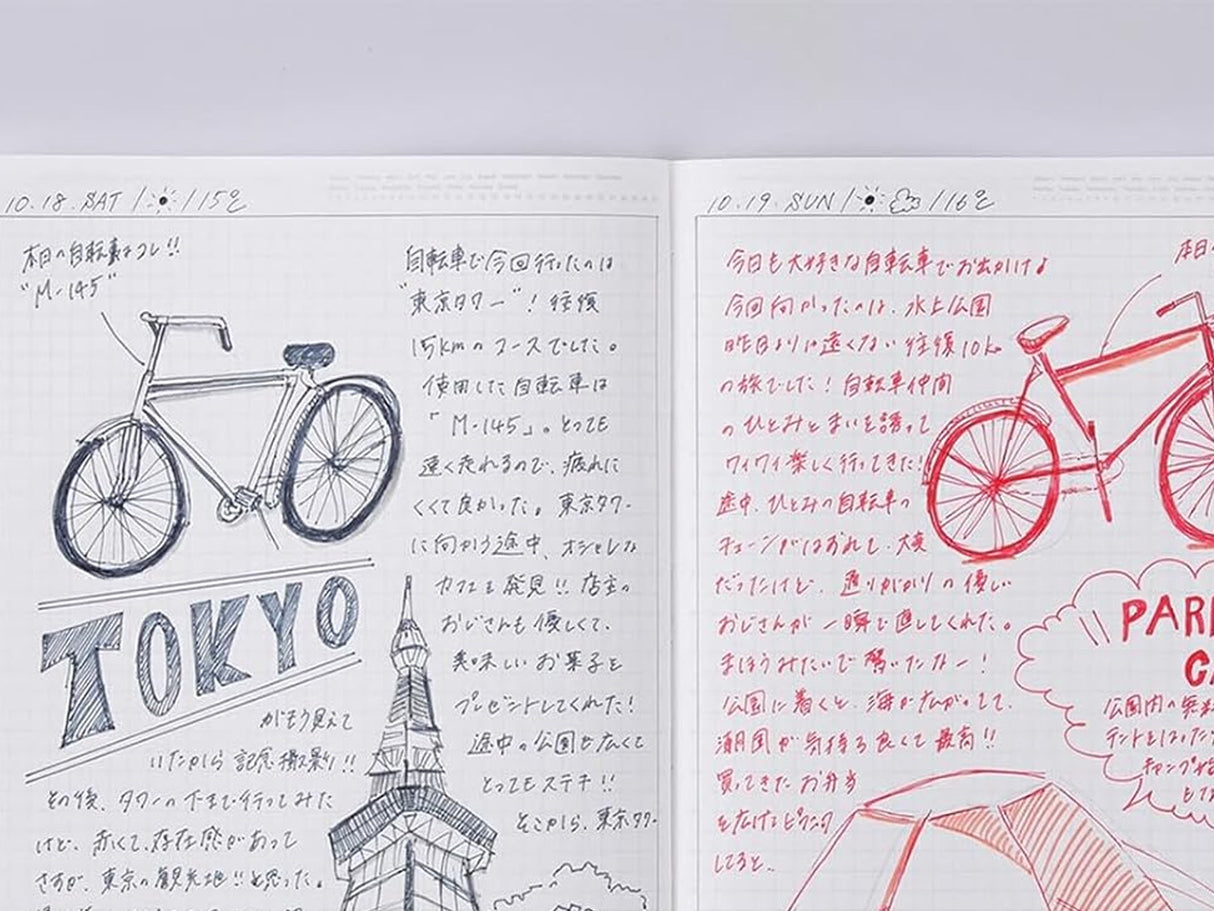 10.18.SAT / 15℃
本日の自転車はコレ!!
"M-145"
自転車で今回行ったのは
"東京タワー"! 往復
15kmのコースでした。
使用した自転車は
「M-145」。とっても
速く走れるので、疲れに
くくて良かった。東京タワー
に向かう途中、オシャレな
カフェも発見!! 店主の
おじさんも優しくて、
美味しいお菓子を
プレゼントしてくれた!
途中の公園も広くて
とってもステキ!!
そこから、東京タワー
TOKYO
がもう見えて
いたから記念撮影!!
その後、タワーの下まで行ってみた
けど、赤くて、存在感があって
さすが、東京の観光地!!と思った。
10.19.SUN / 16℃
今日も大好きな自転車でお出かけ♪
今回向かったのは、水上公園
昨日よりは遠くない往復10km
の旅でした! 自転車仲間
のひとみとまいを誘って
ワイワイ楽しく行ってきた!
途中、ひとみの自転車の
チェーンがはずれて、大変
だったけど、通りがかりの優しい
おじさんが一瞬で直してくれた。
まほうみたいで驚いたなー!
公園に着くと、海が広がってて、
潮風が気持ち良くて最高!!
買ってきたお弁当
を広げてピクニック
してると、
本日の
PAR
CA
公園内の
テントをはった
キャンプ